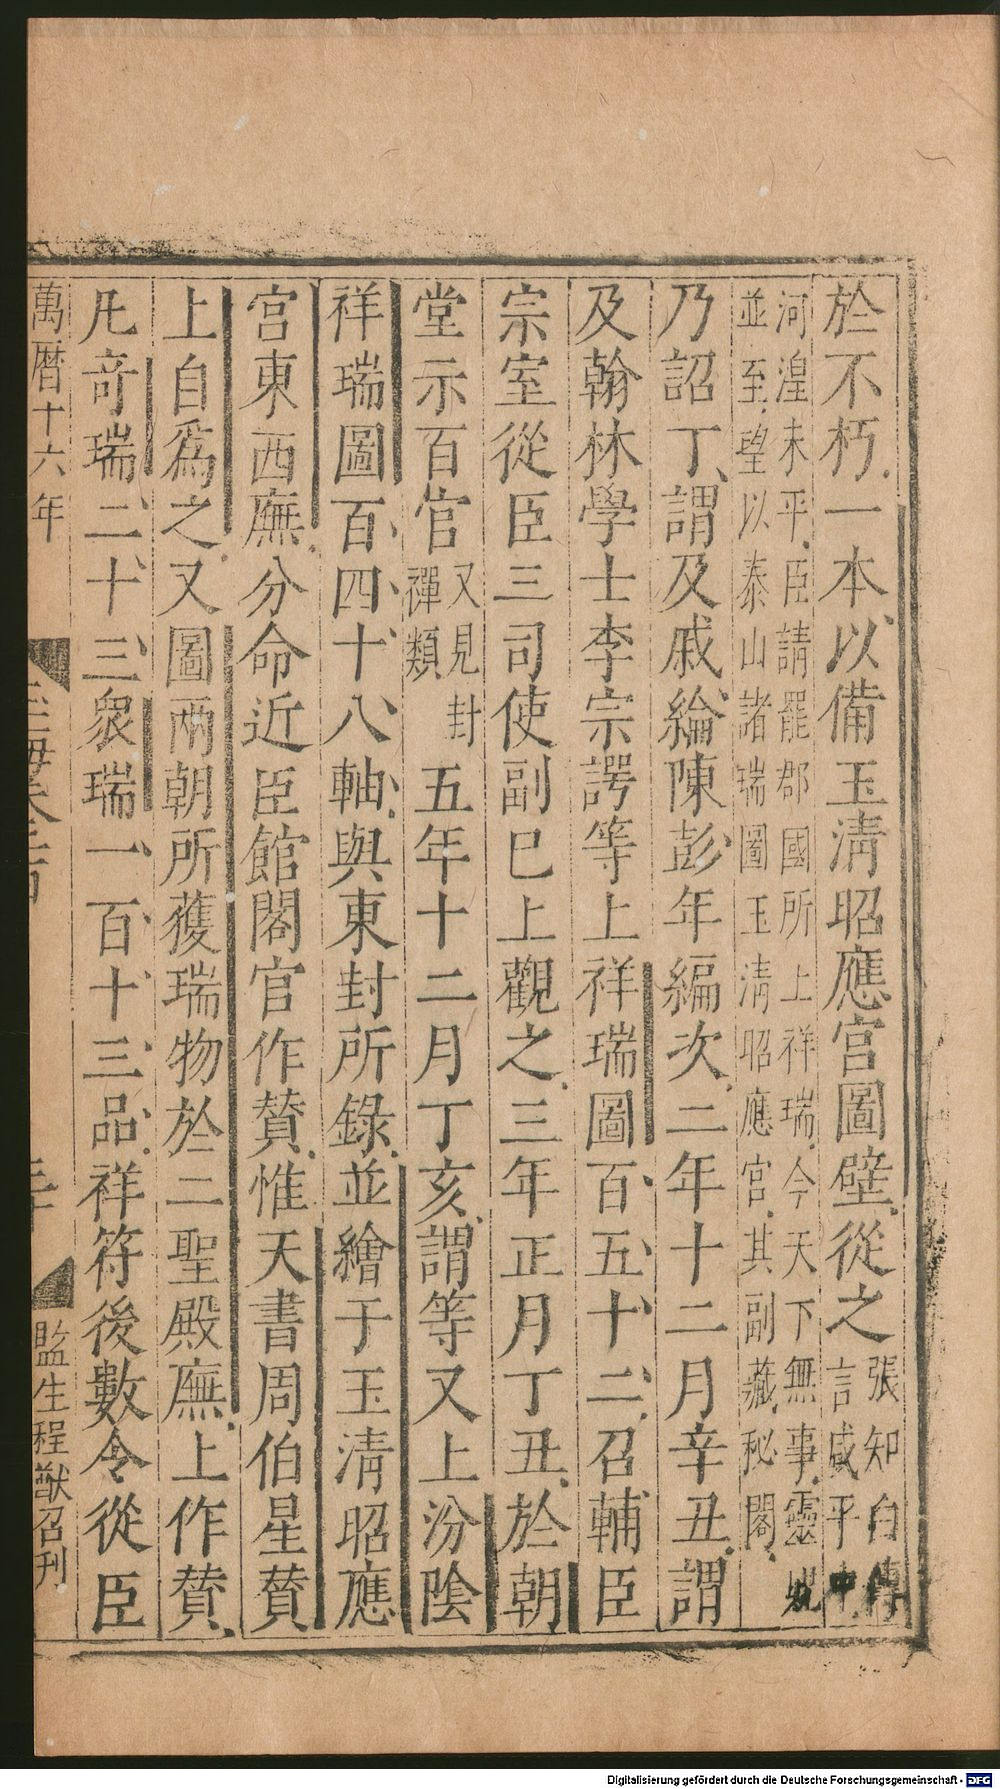 於不朽一本以備玉清昭應宮圖壁從之張知白傳言咸平中
河湟未平臣請罷郡國所上祥瑞今天下無事靈
並至望以泰山諸瑞圖玉清昭應宮其副藏秘閣
乃詔丁謂及戚綸陳彭年編次二年十二月辛丑謂
及翰林學士李宗諤等上祥瑞圖百五十二召輔臣
宗室從臣三司使副已上觀之三年正月丁丑於朝
堂示百官又見封禪類五年十二月丁亥謂等又上汾陰
祥瑞圖百四十八軸與東封所錄並繪于玉清昭應
宮東西廡分命近臣館閣官作贊惟天書周伯星贊
上自爲之又圖兩朝所獲瑞物於二聖殿廡上作贊
凡奇瑞二十三衆瑞一百十三品祥符後數令從臣
萬曆十六年 玉海 監生程猷召刊
Digitalisierung gefördert durch die Deutsche Forschungsgemeinschaft - DFG